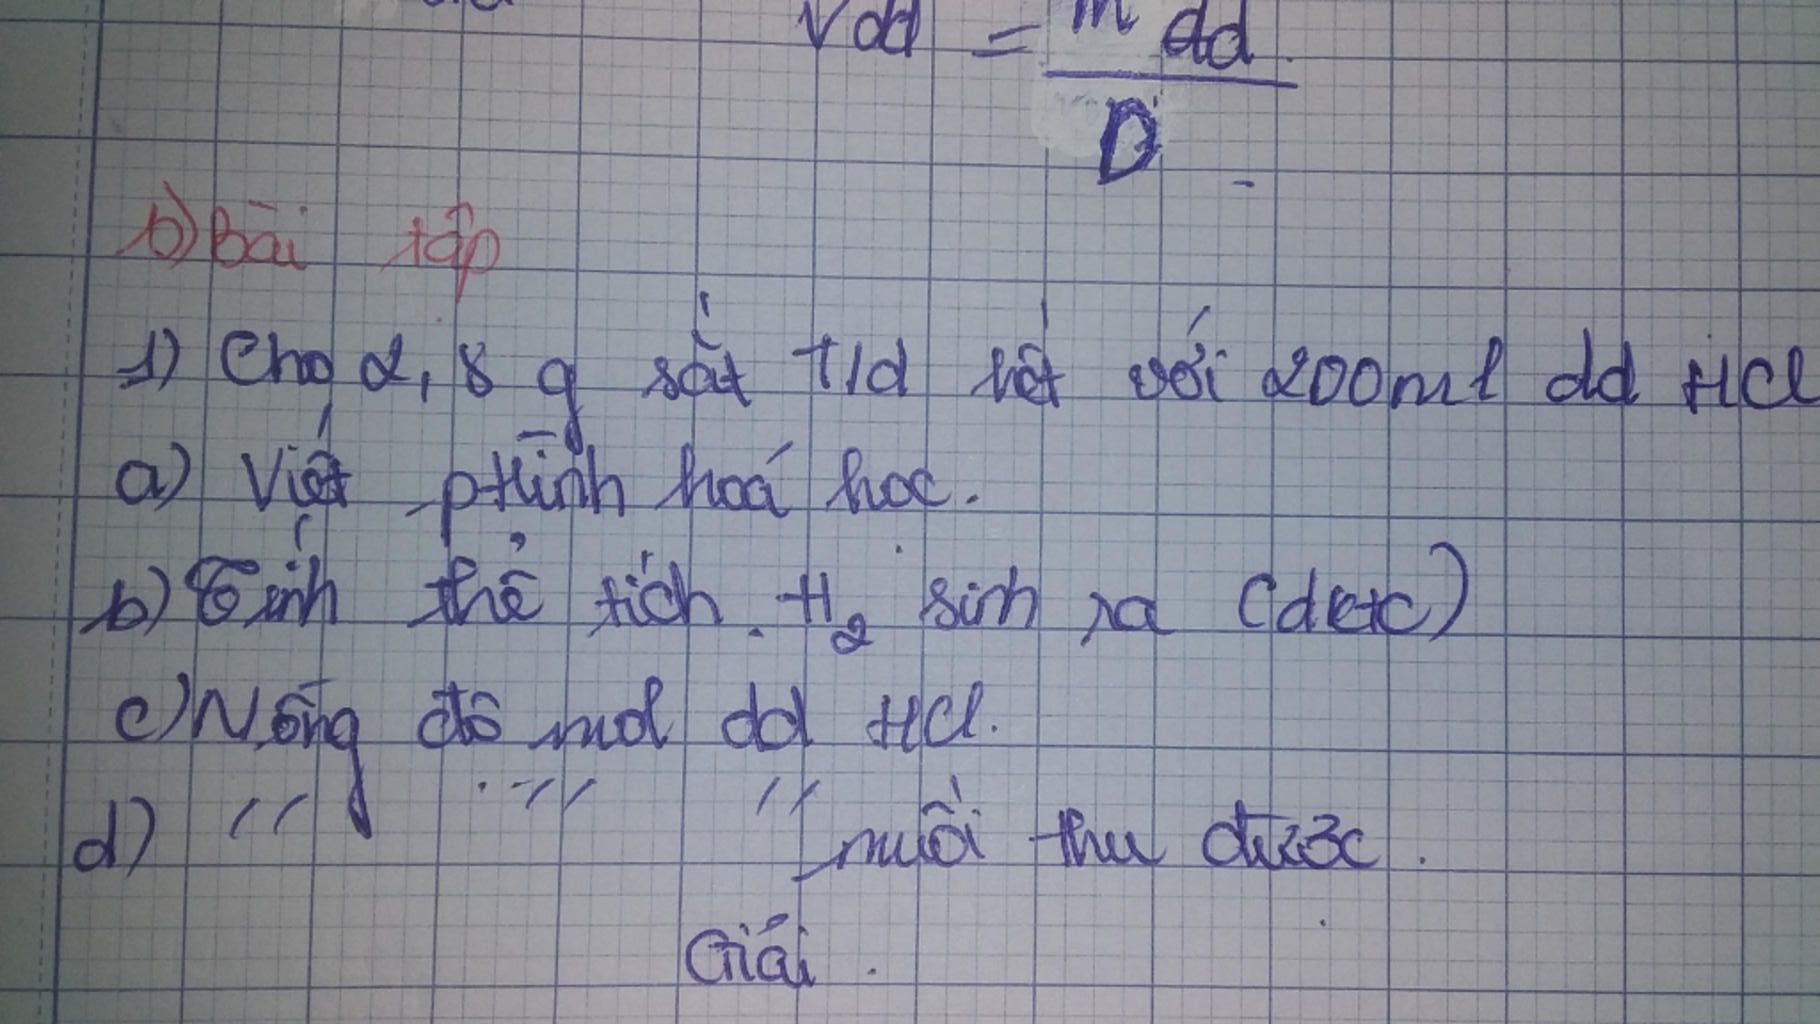 Vdd = m dd
D
b) Bài tập
1) Cho 2,8 g sắt T/d hết với 200ml dd HCl
a) Viết ptrình hoá học.
b) Tính thể tích H2 sinh ra (đktc)
c) Nồng độ mol dd HCl.
d) " " " muối thu được.
Giải